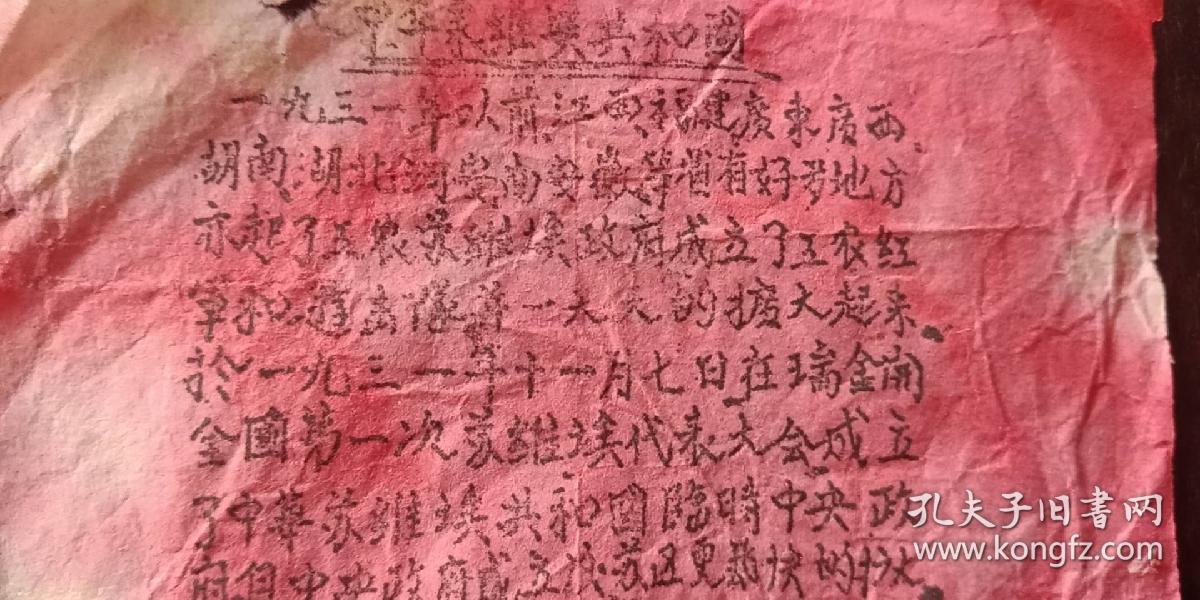 中华苏维埃共和國
一九三一年以前江西福建廣東广西
胡南湖北河南安徽等省有好多地方
亦起了工农苏維埃政府成立了工农红
军和游击隊並一天天的擴大起来
於一九三一年十一月七日在瑞金開
全國第一次苏維埃代表大会成立
了中華苏維埃共和國臨時中央政
府但中央政府成立後苏区更勁快的扩大
孔夫子旧书网
www.kongfz.com